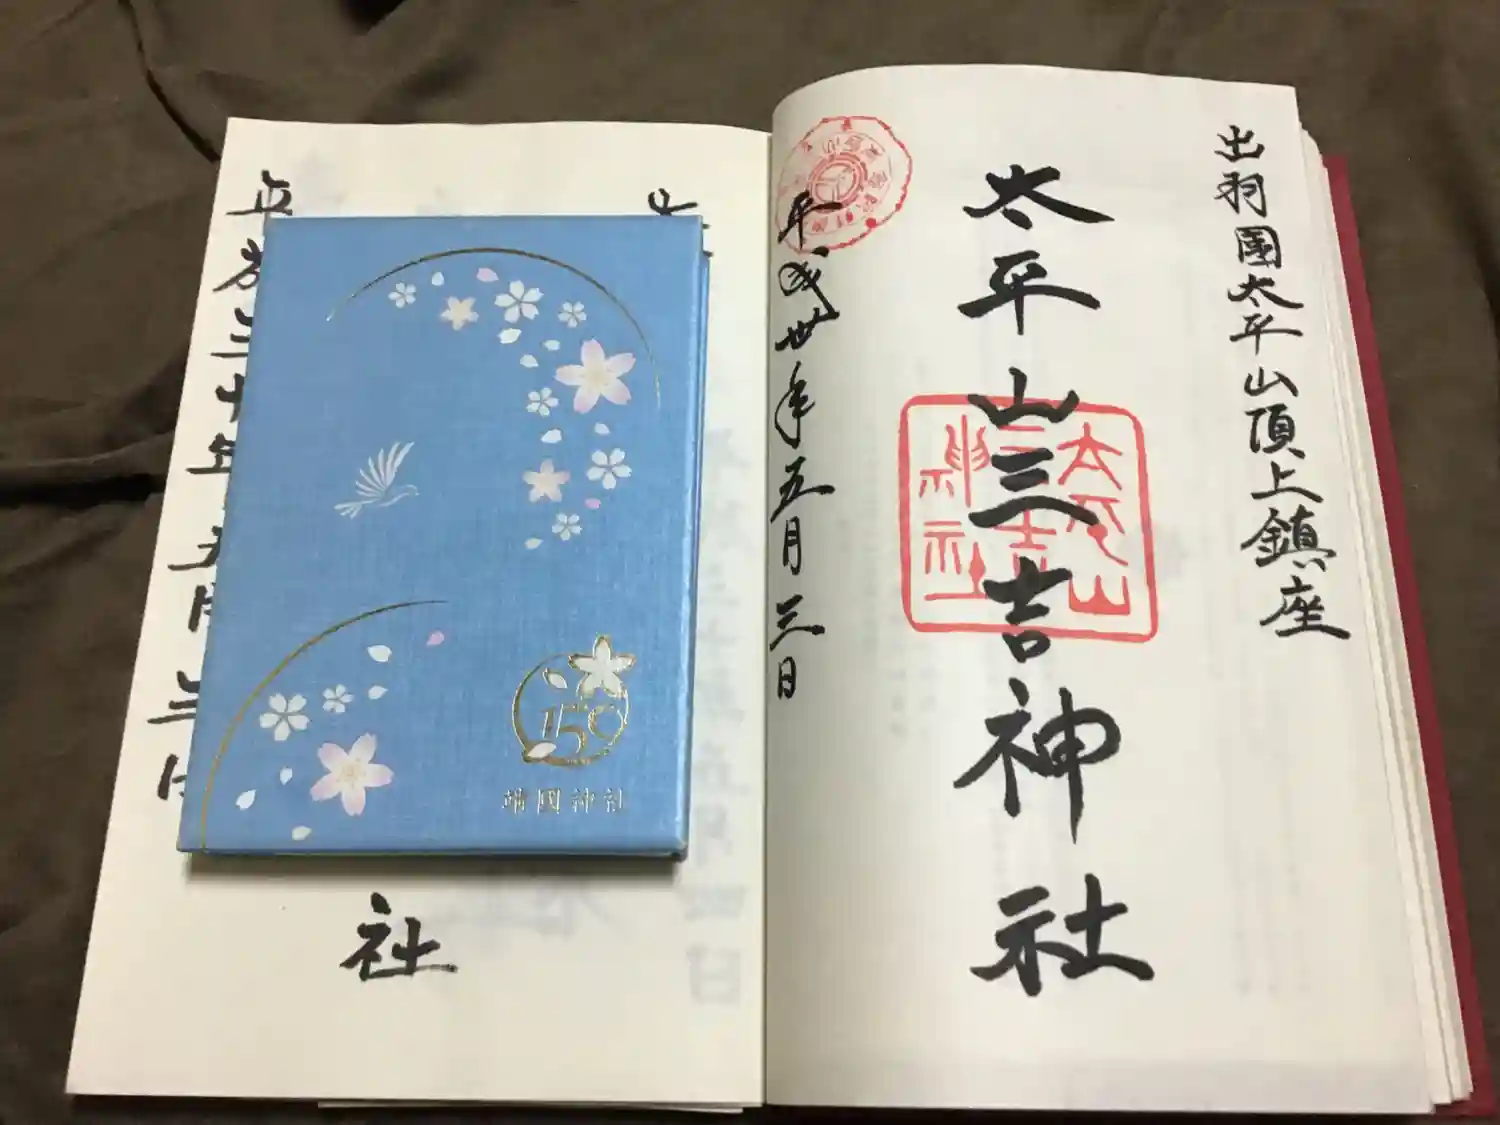 出羽國太平山頂上鎮座
太平山三吉神社
平成卅年五月三日
太平山三吉神社
平成三十年五月三日
社
150
靖國神社